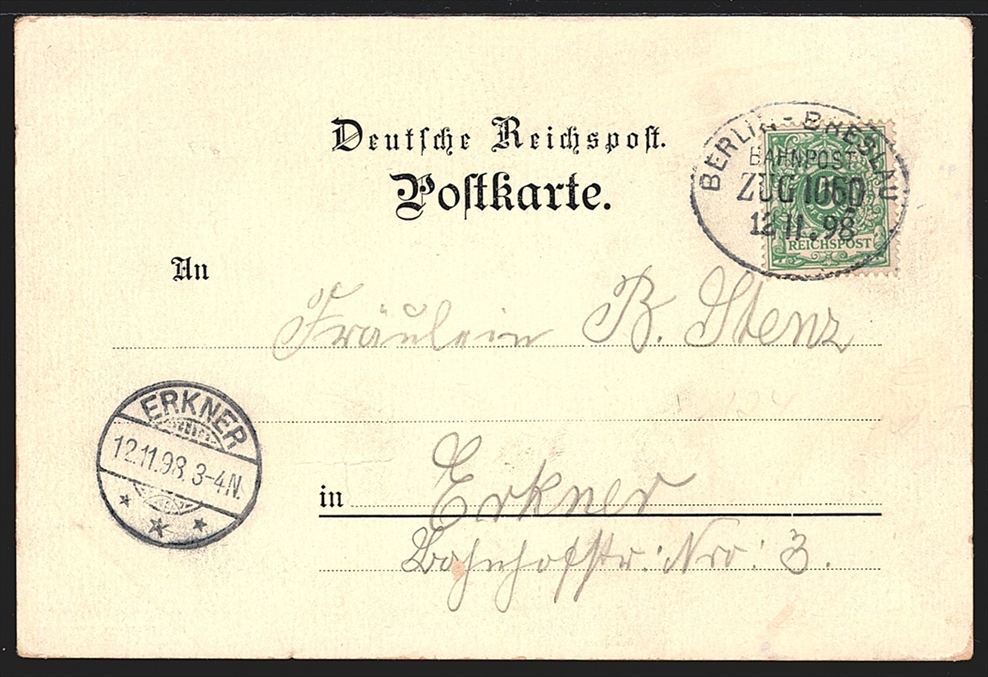 Deutsche Reichspost.
Postkarte.
BERLIN - BRESLAU
BAHNPOST
ZUG 1060
12 11.98
REICHSPOST
An
Fräulein B. Stenz
ERKNER
12.11.98. 3-4N.
in Erkner
Bahnhofstr: Nro: 3.